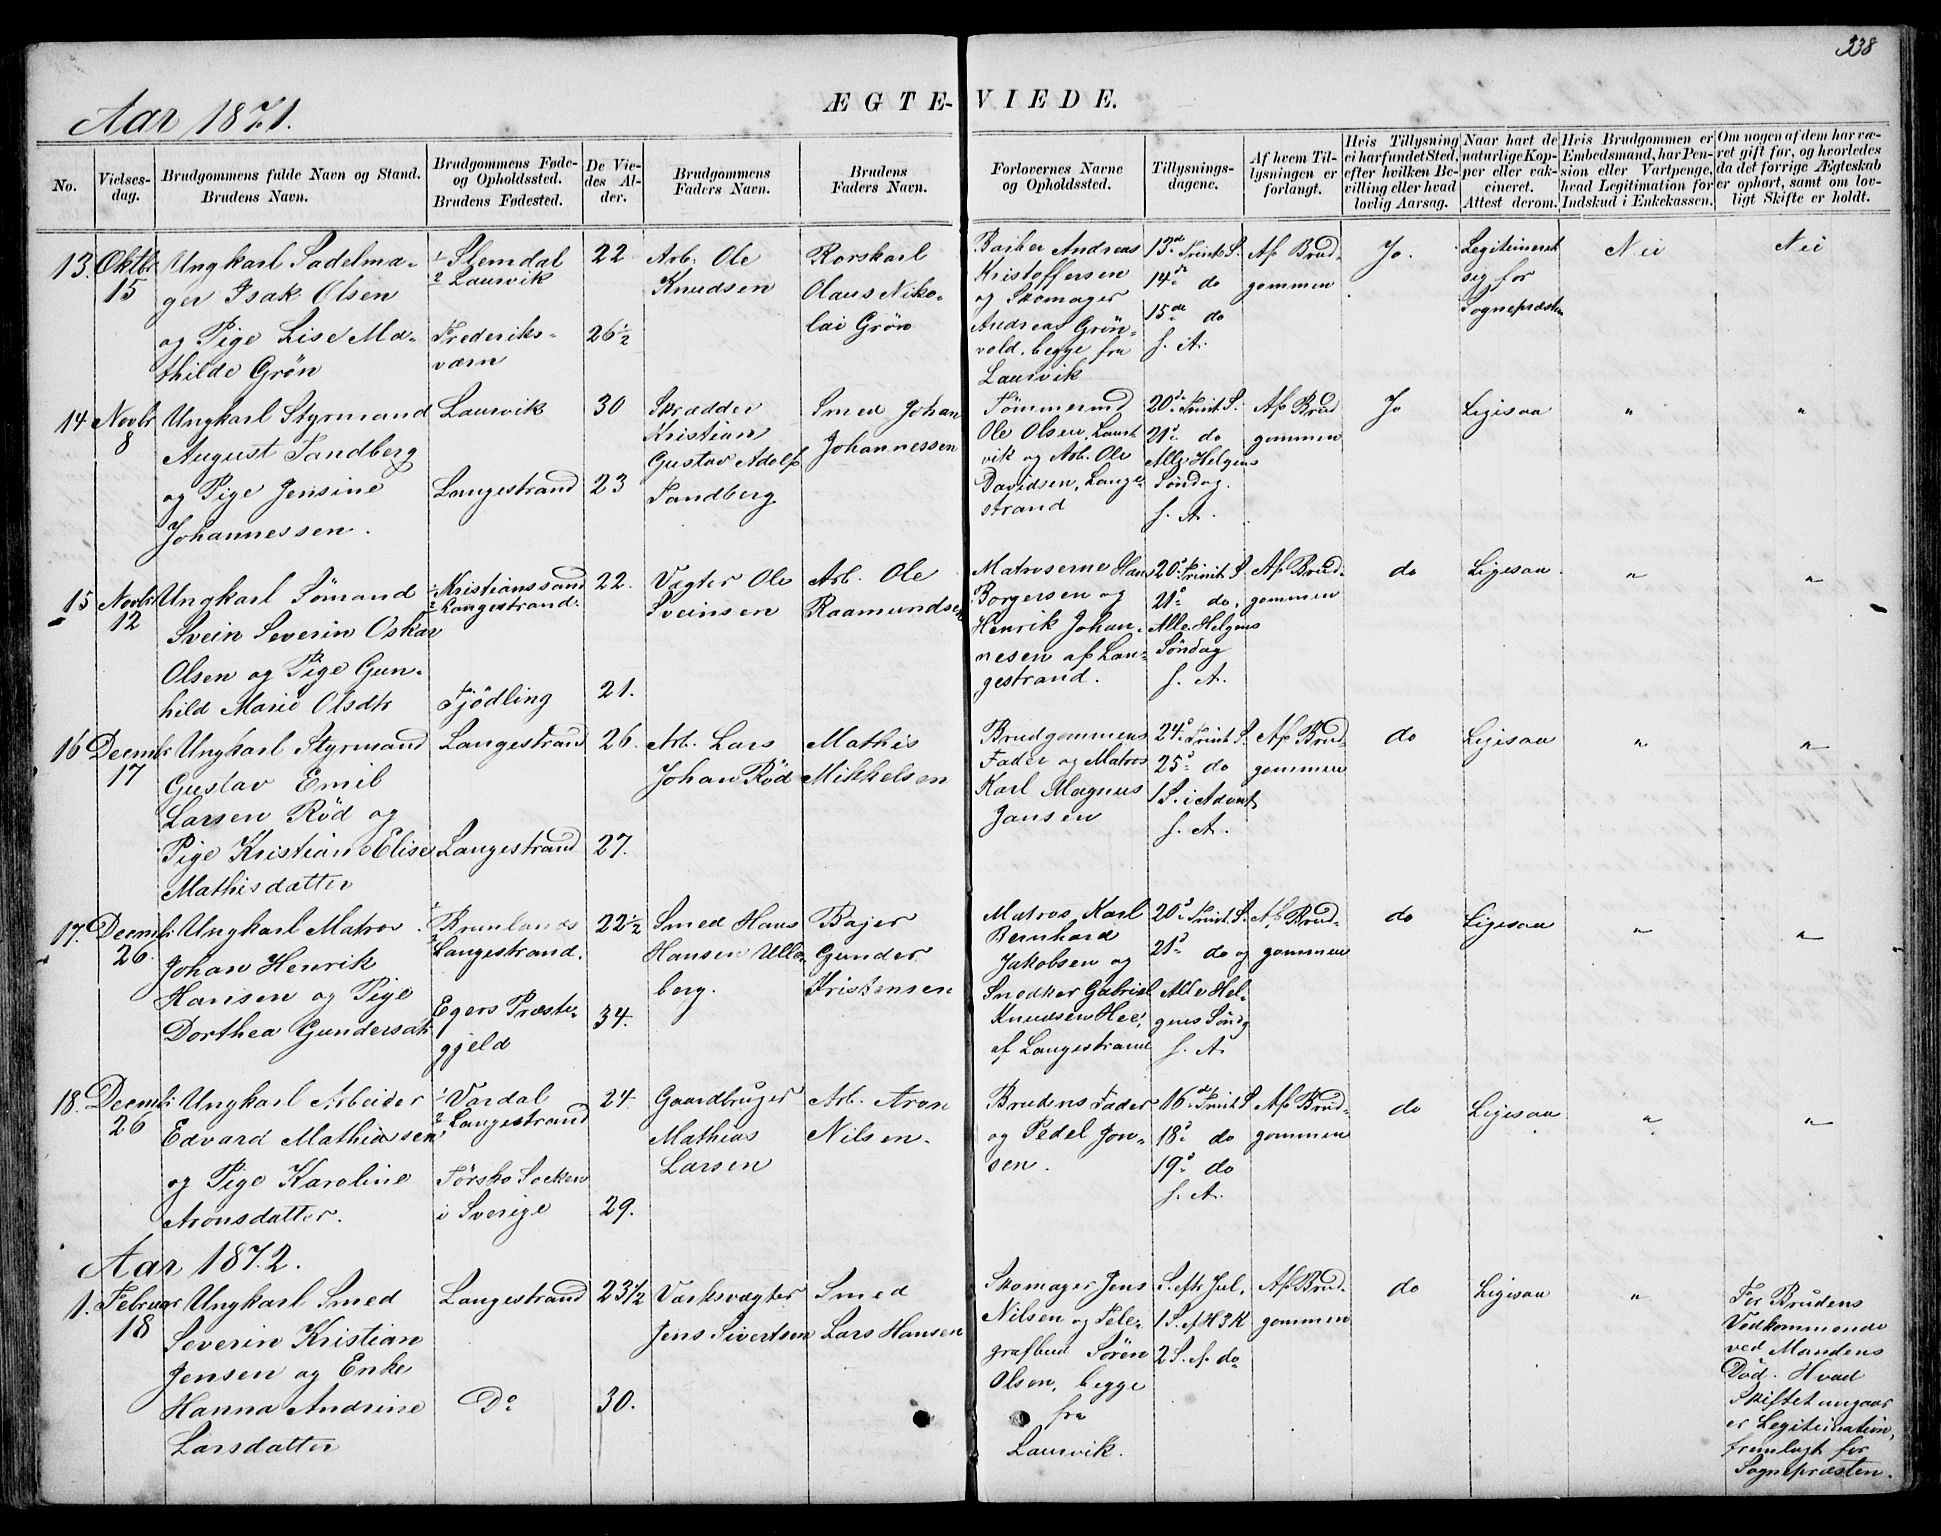 338
Aar 1871.
ÆGTE-VIEDE.
No.
Vielses-
dag.
Brudgommens fulde Navn og Stand.
Brudens Navn.
Brudgommens Føde-
og Opholdssted.
Brudens Fødested.
De Vie-
des Al-
der.
Brudgommens
Faders Navn.
Brudens
Faders Navn.
Forlovernes Navne
og Opholdssted.
Tillysnings-
dagene.
Af hvem Til-
lysningen er
forlangt.
Hvis Tillysning
ei har fundet Sted,
efter hvilken Be-
villing eller hvad
lovlig Aarsag.
Naar havt de
naturlige Kop-
per eller vak-
cineret.
Attest derom.
Hvis Brudgommen er
Embedsmand, har Pen-
sion eller Vartpenge,
hvad Legitimation for
Indskud i Enkekassen.
Om nogen af dem har væ-
ret gift før, og hvorledes
da det forrige Ægteskab
er ophørt, samt om lov-
ligt Skifte er holdt.
13.
Oktbr
15
Ungkarl Sadelma-
ger Isak Olsen
og Pige Lise Ma-
thilde Grön
1 Slemdal
2 Laurvik
Frederiks-
værn
22
26½
Arb. Ole
Knudsen
Rorskarl
Olaus Niko-
lai Grön
Barber Andreas
Kristoffersen
og Skomager
Andreas Grön-
vold, begge fra
Laurvik
13de Trinit S.
14de do
15de do
f. A.
Af Brud-
gommen
Jo.
Legitimeret
sig for
Sognepræsten
Nei
Nei
14
Novbr
8
Ungkarl Styrmand
August Sandberg
og Pige Jensine
Johannessen.
Laurvik
Langestrand
30
23
Skrædder
Kristian
Gustav Adolf
Sandberg
Smed Johan
Johannessen
Tömmermd
Ole Olsen, Laur-
vik og Arb. Ole
Davidsen, Lange-
strand
20de Trinit. S.
21d do
Alle Helgens
Söndag.
f. A.
Af Brud
gommen
Jo
Ligesaa
"
"
15
Novbr
12
Ungkarl Sömand
Svein Severin Oskar
Olsen og Pige Gun-
hild Marie Olsdtr
1 Kristianssand
2 Langestrand.
Tjödling
22.
21.
Vægter Ole
Sveinsen
Arb. Ole
Raamundsen
Matroserne Hans
Borgersen og
Henrik Johan-
nesen af Lan-
gestrand.
20d Trinit. S
21d do,
Alle Helgens
Söndag
f. A.
Af Brud-
gommen
do
Ligesaa.
"
"
16
Decembr
17
Ungkarl Styrmand
Gustav Emil
Larsen Röd og
Pige Kristiane Elise
Mathisdatter
Langestrand
Langestrand
26.
27.
Arb. Lars
Johan Röd
Mathis
Mikkelsen
Brudgommens
Fader og Matros
Karl Magnus
Jansen
24d Trinit S.
25d do
1 S. i Advent
f. A.
Af Brud-
gommen
do
Ligesaa
"
"
17.
Decembr
26
Ungkarl Matros
Johan Henrik
Hansen og Pige
Dorthea Gundersdtr
1 Brunlanæs
2 Langestrand.
Egers Præste-
gjeld
22½
34.
Smed Hans
Hansen Ulla-
berg.
Bajer
Gunder
Kristensen
Matros Karl
Bernhard
Jakobsen og
Snedker Gabriel
Knudsen Hee,
af Langestrand
20d Trinit. S.
21d do og
Alle Hel-
gens Söndg
f. A.
Af Brud-
gommen
do
Ligesaa
"
"
18.
Decembr
26
Ungkarl Arbeider
Edvard Mathiassen
og Pige Karoline
Aronsdatter.
1 Vardal
2 Langestrand
Försko Socken
i Sverige
24.
29.
Gaardbruger
Mathias
Larsen
Arb. Aron
Nilsen.
Brudens Fader
og Pedel Jon-
sen.
16d Trinit S
18d do
19d do
f. A.
Af Brud-
gommen
do
Ligesaa
"
"
Aar 1872.
1.
Februar
18
Ungkarl Smed
Severin Kristian
Jensen og Enke
Hanna Andrine
Larsdatter
Langestrand
Do
23½
30.
Værksvægter
Jens Sivertsen
Smed
Lars Hansen
Skomager Jens
Nilsen og Tele-
grafbud Sören
Olsen, begge
fra
Laurvik.
S. eftr Jul,
1 S. ef H3K
2 S. f. do
Af Brud-
gommen
do
Ligesaa
"
For Brudens
Vedkommende
ved Mandens
Död. Hvad
Skiftet angaar
er Legitimation,
fremlagt for
Sognepræsten.